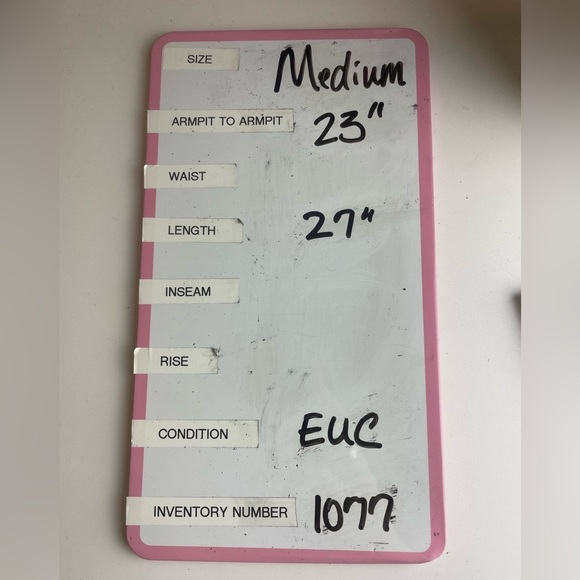 SIZE Medium
ARMPIT TO ARMPIT 23"
WAIST
LENGTH 27"
INSEAM
RISE
CONDITION EUC
INVENTORY NUMBER 1077